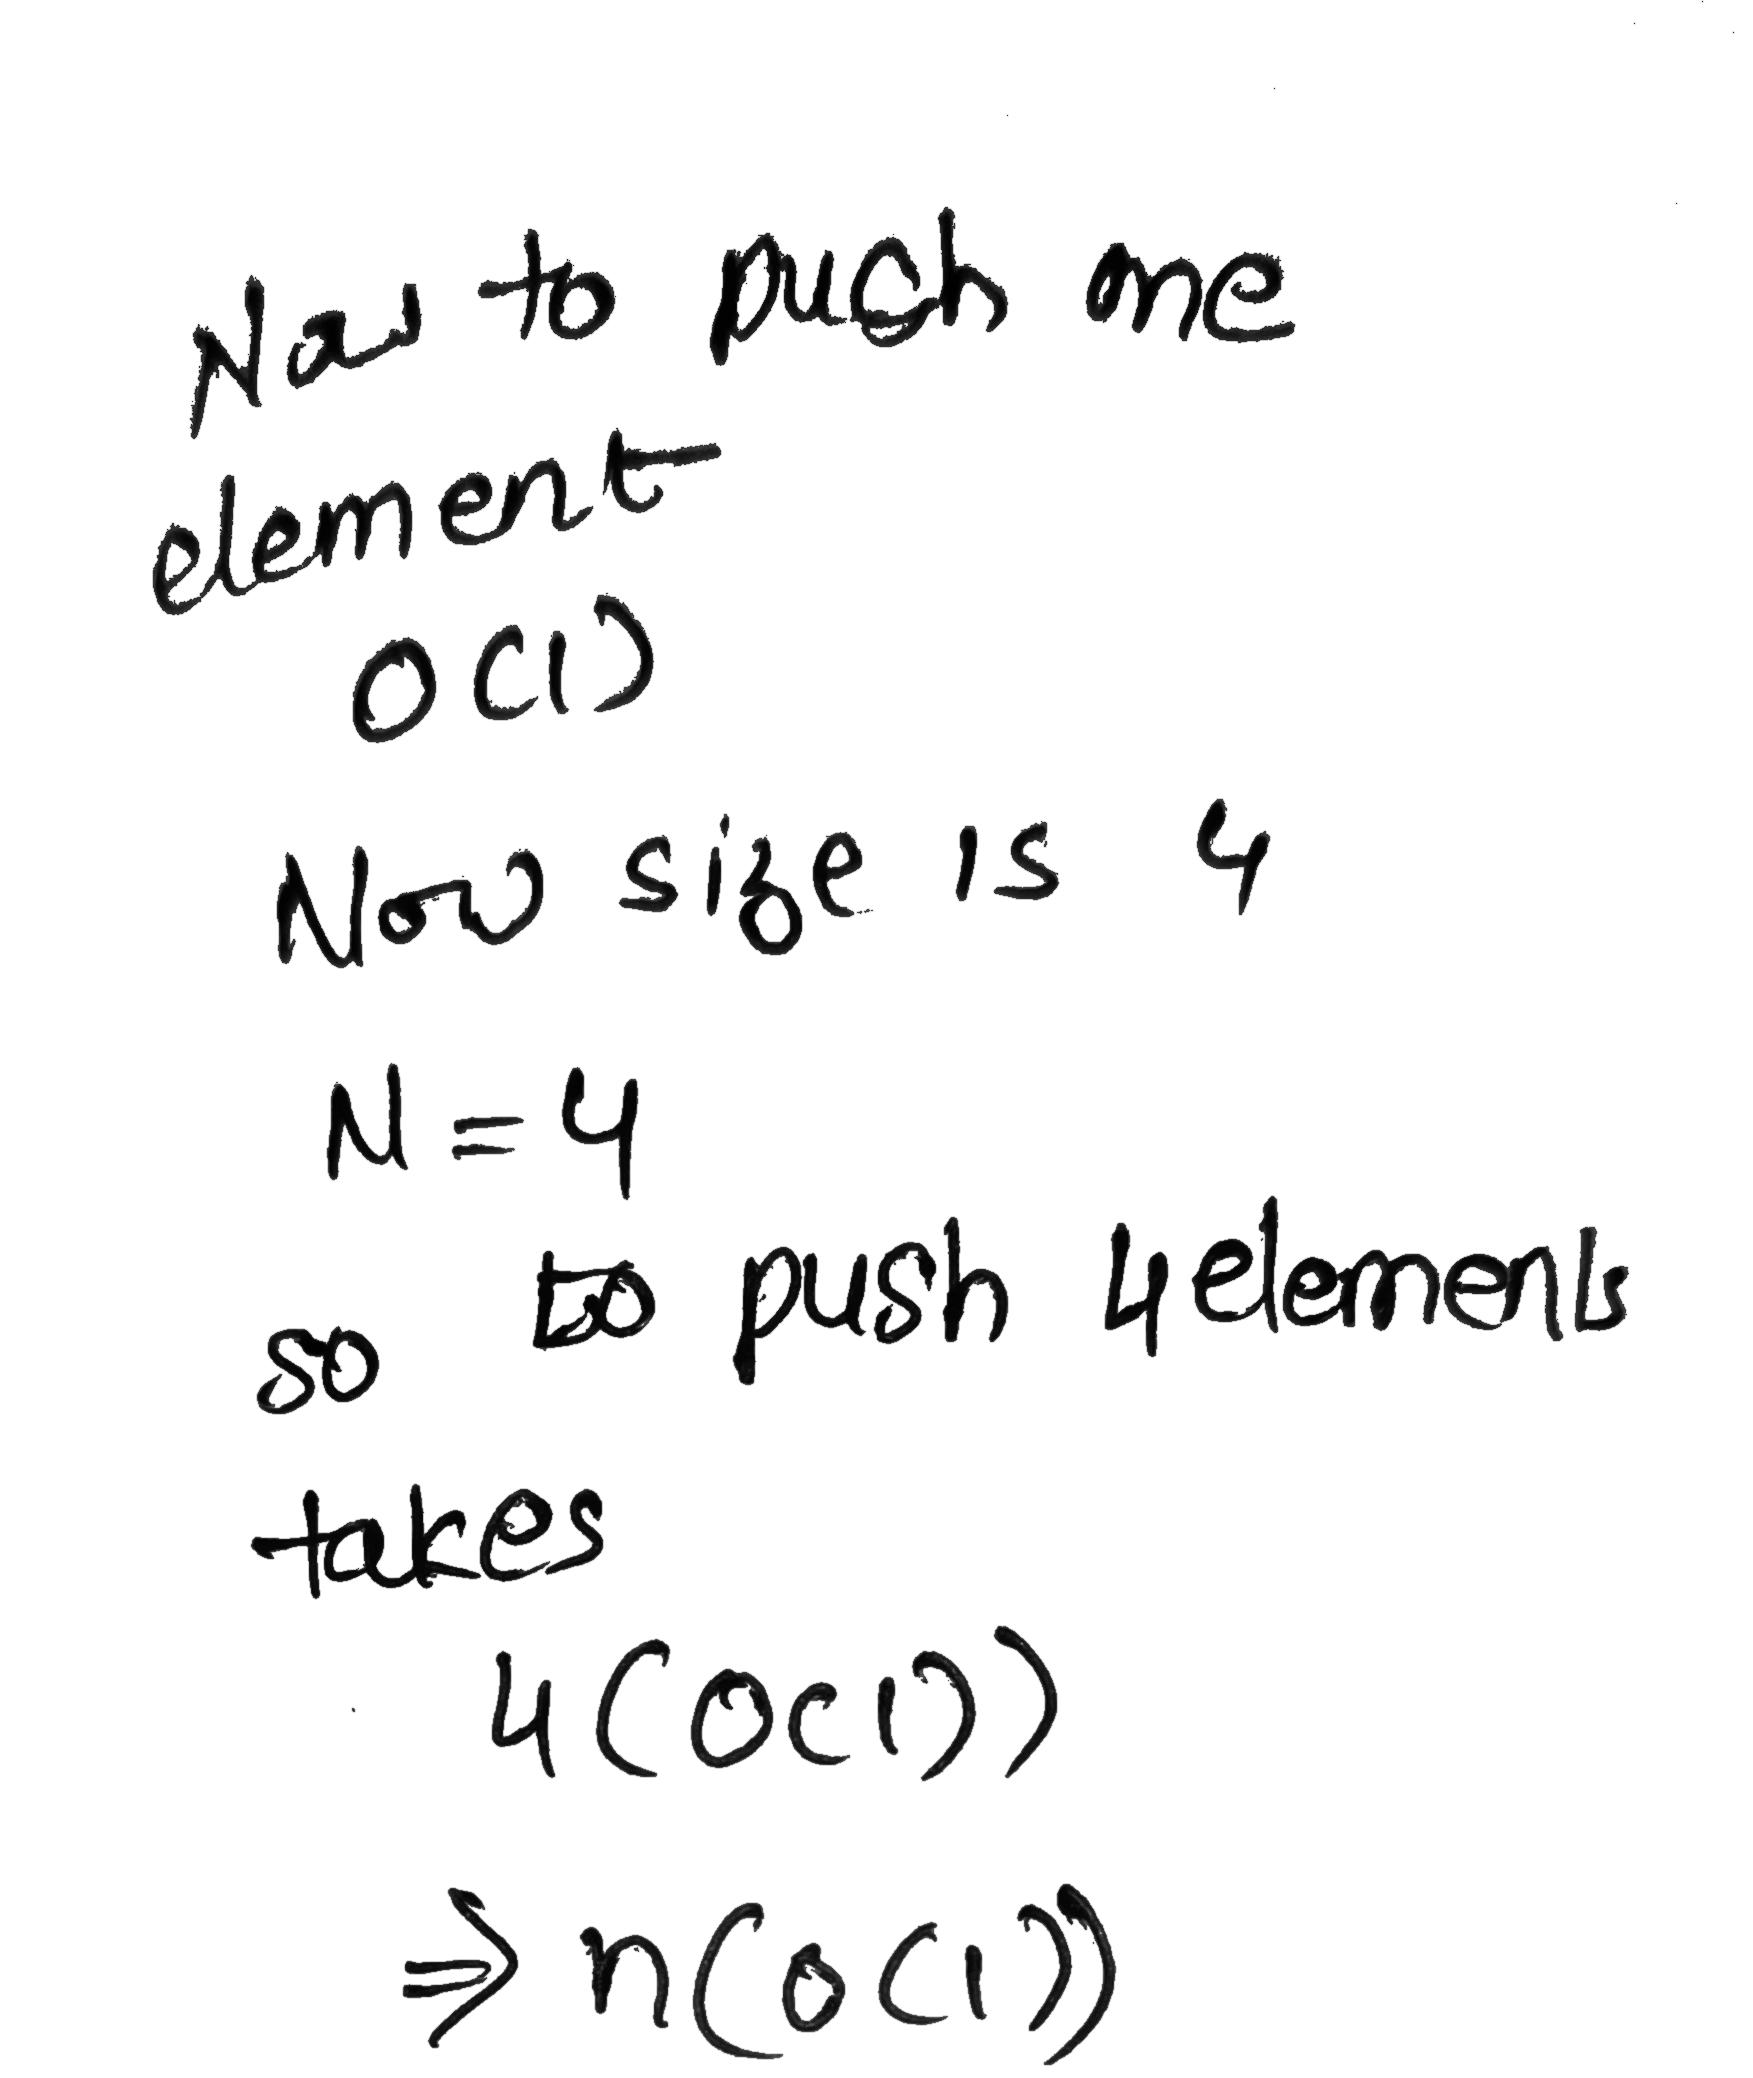 Now to push one
element
O(1)
Now size is 4
N = 4
so to push 4 elements
takes
4(O(1))
⇒ n(O(1))